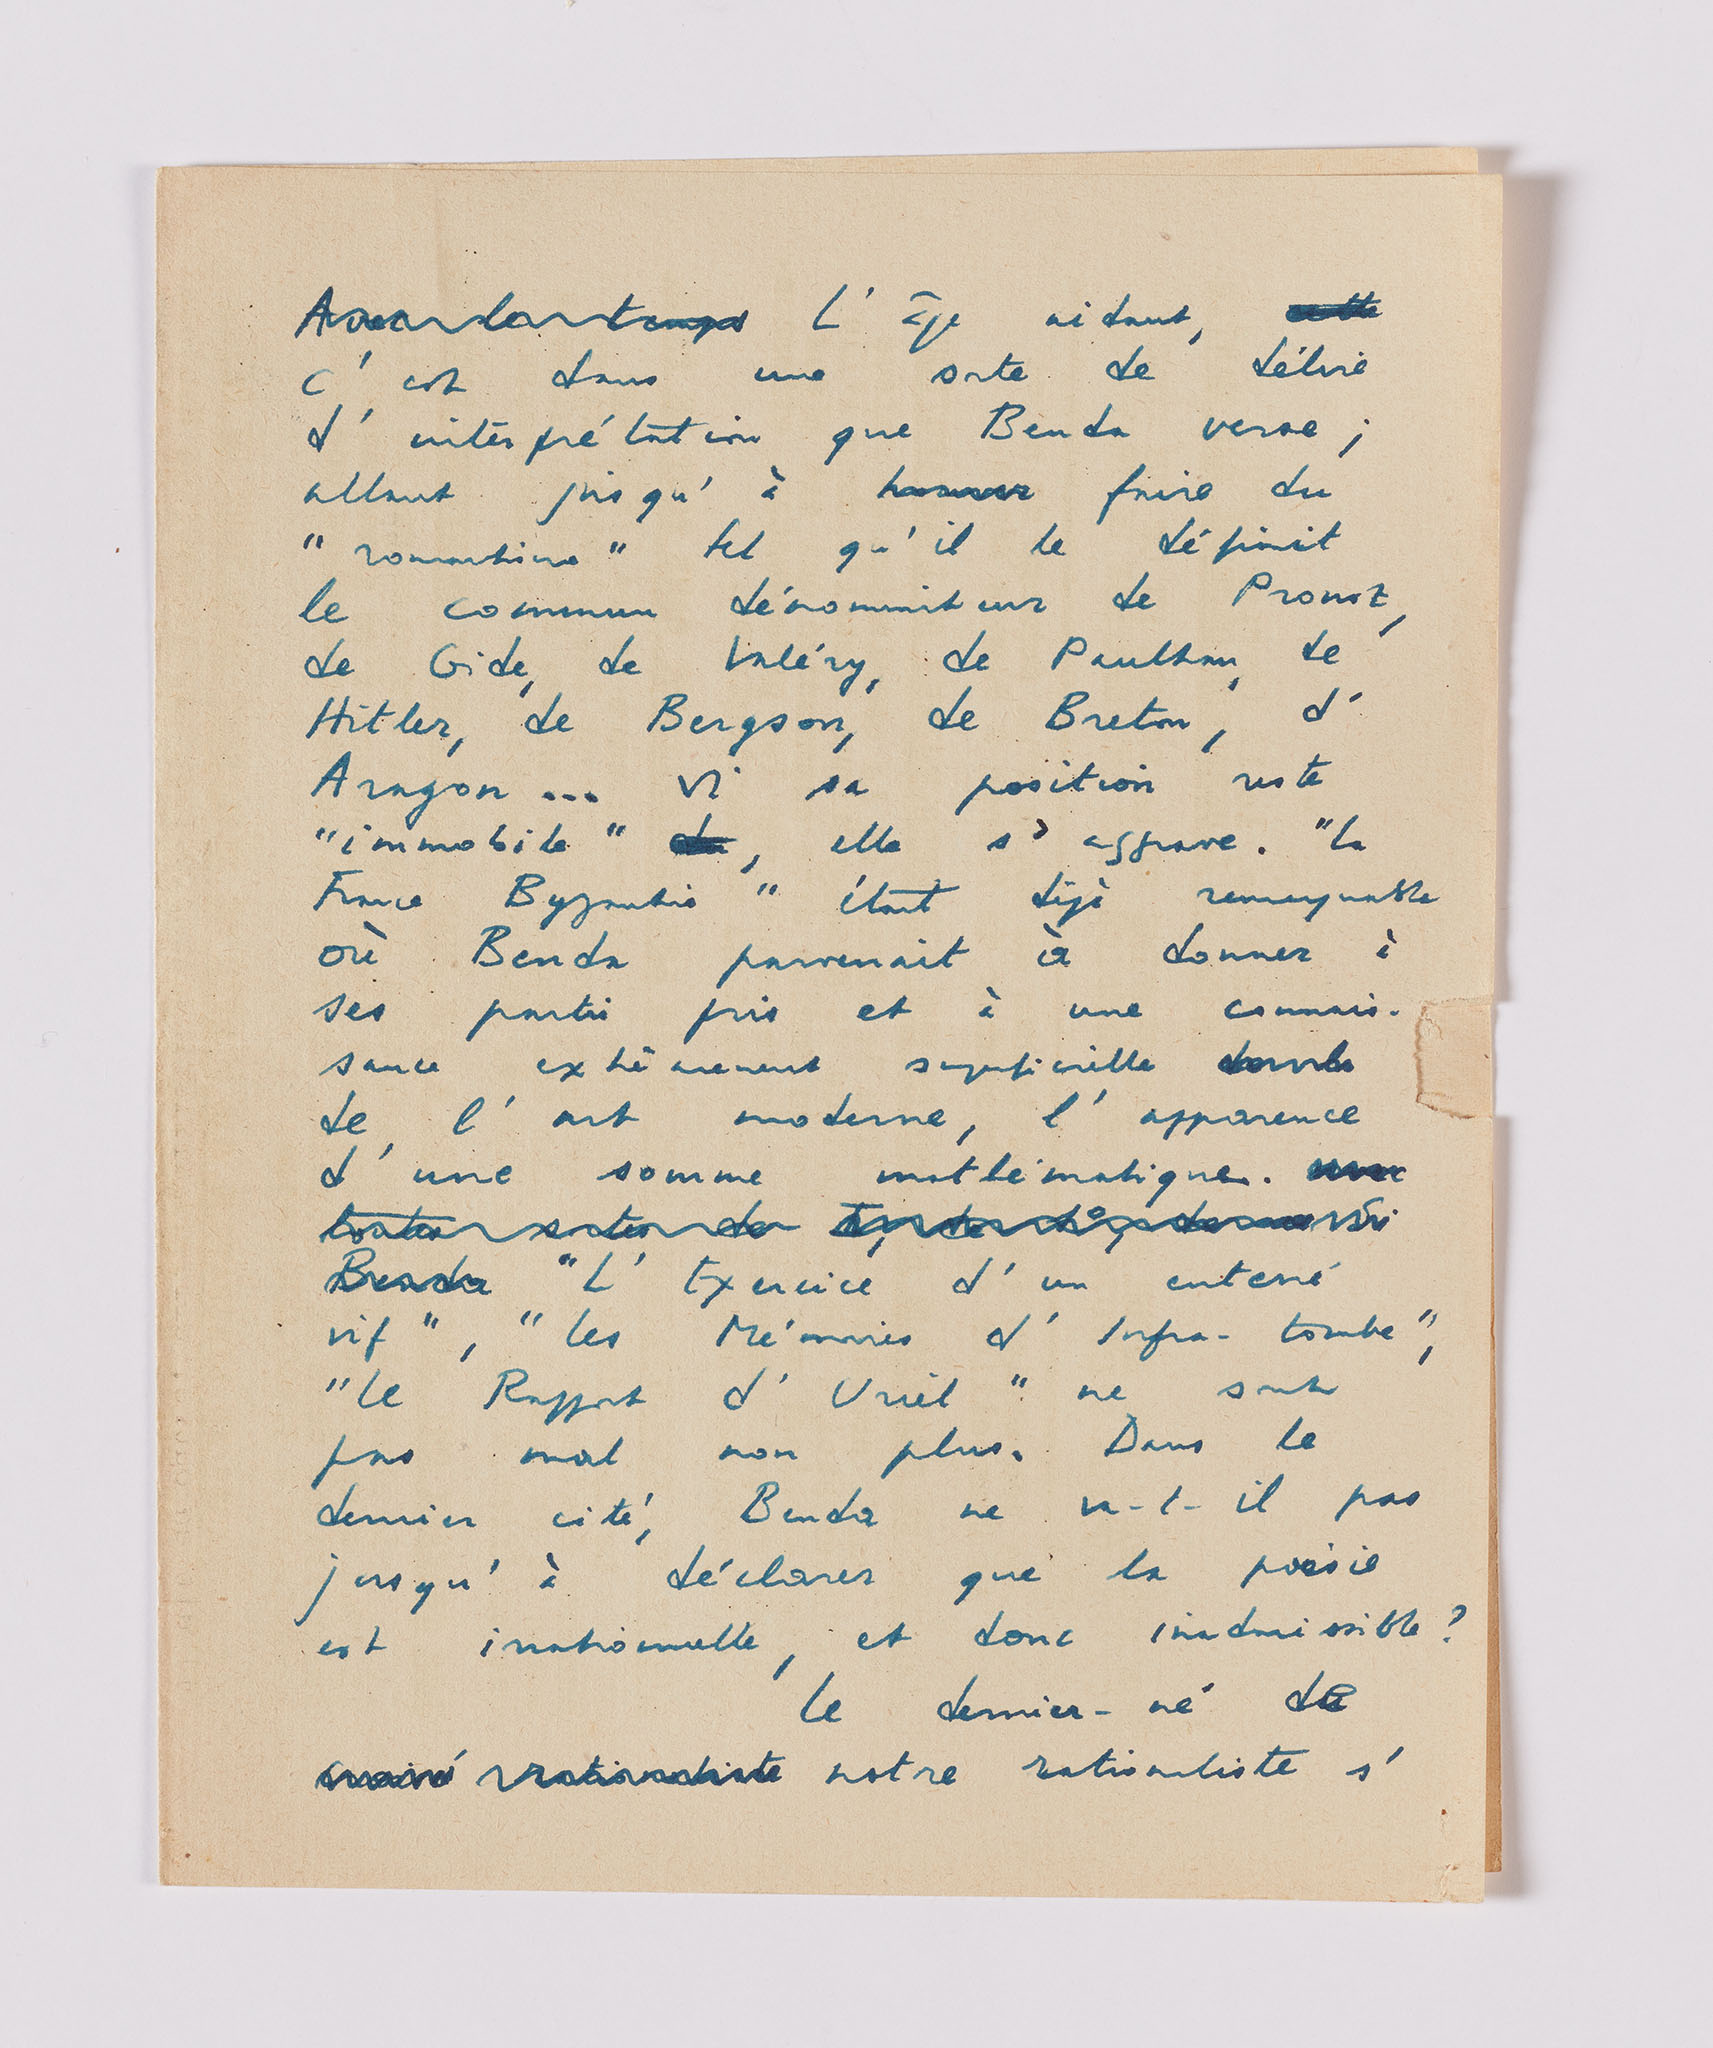 Avec le temps L'âge aidant, cette
c'est dans une sorte de délire
d'interprétation que Benda verse ;
allant jusqu'à faire du
"romantisme" tel qu'il le définit
le commun dénominateur de Proust,
de Gide, de Valéry, de Paulhan, de
Hitler, de Bergson, de Breton, d'
Aragon... Si sa position reste
"immobile" de, elle s'aggrave. "La
France Byzantine" était déjà remarquable
où Benda parvenait à donner à
ses partis pris et à une connais-
sance extrêmement superficielle
de l'art moderne, l'apparence
d'une somme mathématique.
toutes sortes de
Benda "L'Exercice d'un enterré
vif", "Les Mémoires d'Infra-tombe",
"Le Rapport d'Uriel" ne sont
pas mal non plus. Dans le
dernier cité, Benda ne va-t-il pas
jusqu'à déclarer que la poésie
est irrationnelle, et donc inadmissible ?
Le dernier-né de
rationaliste notre rationaliste s'